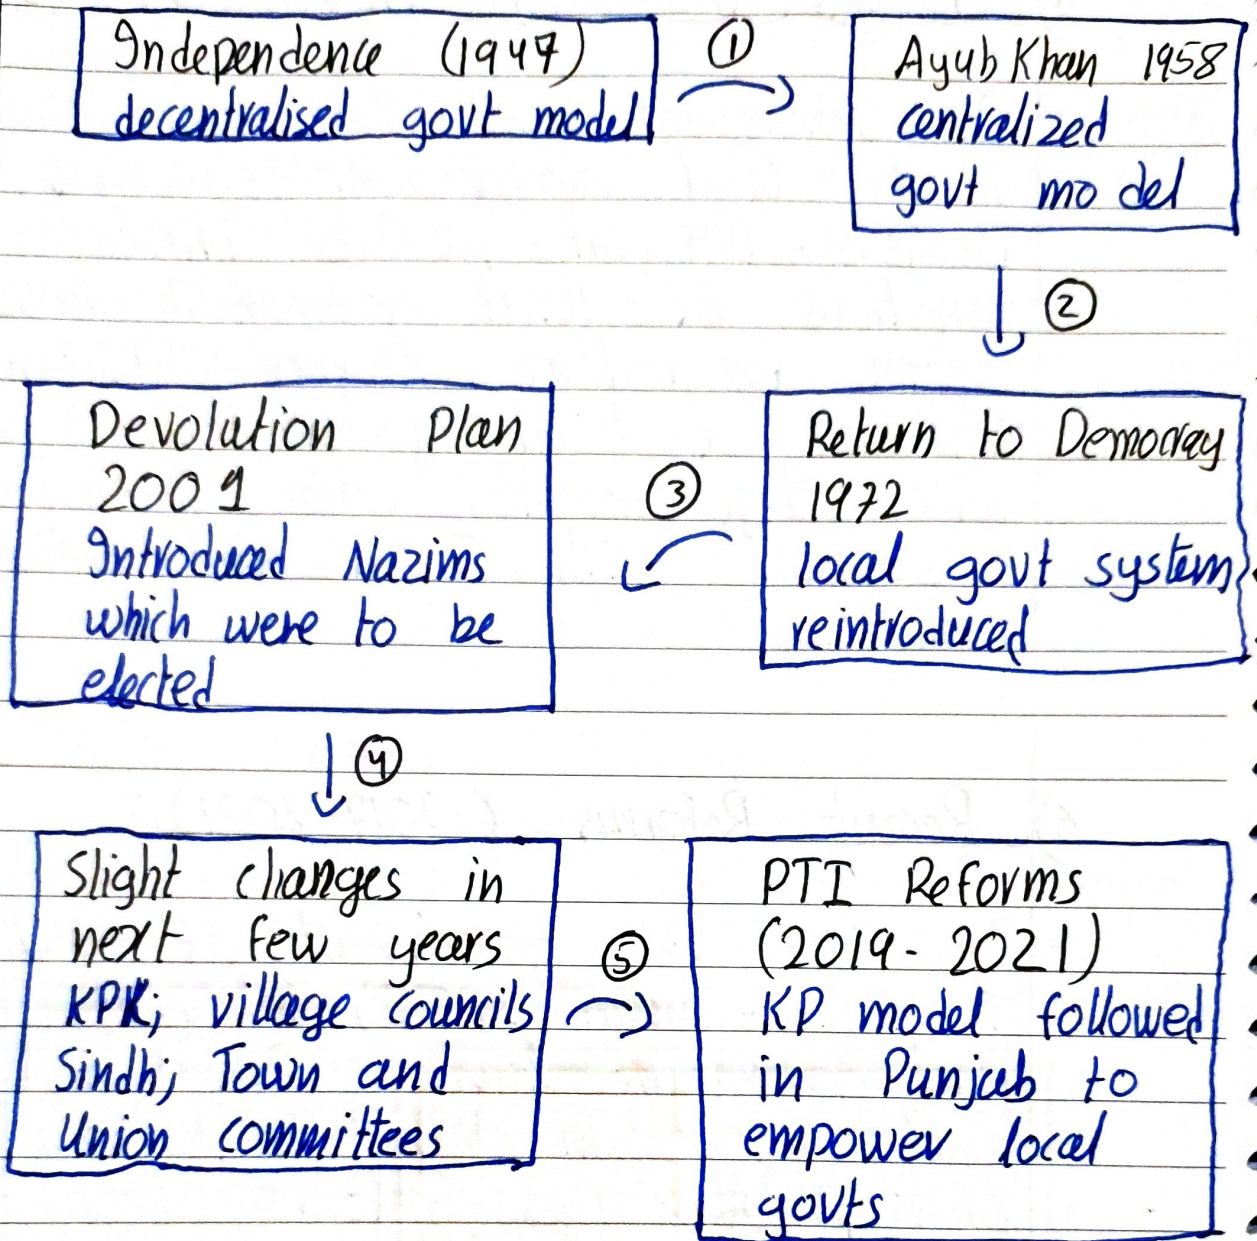 Independence (1947)
decentralised govt model
①
Ayub Khan 1958
centralized
govt model
②
Return to Democray
1972
local govt system
reintroduced
③
Devolution Plan
2001
Introduced Nazims
which were to be
elected
④
Slight changes in
next few years
KPK; village councils
Sindh; Town and
Union committees
⑤
PTI Reforms
(2019-2021)
KP model followed
in Punjab to
empower local
govts